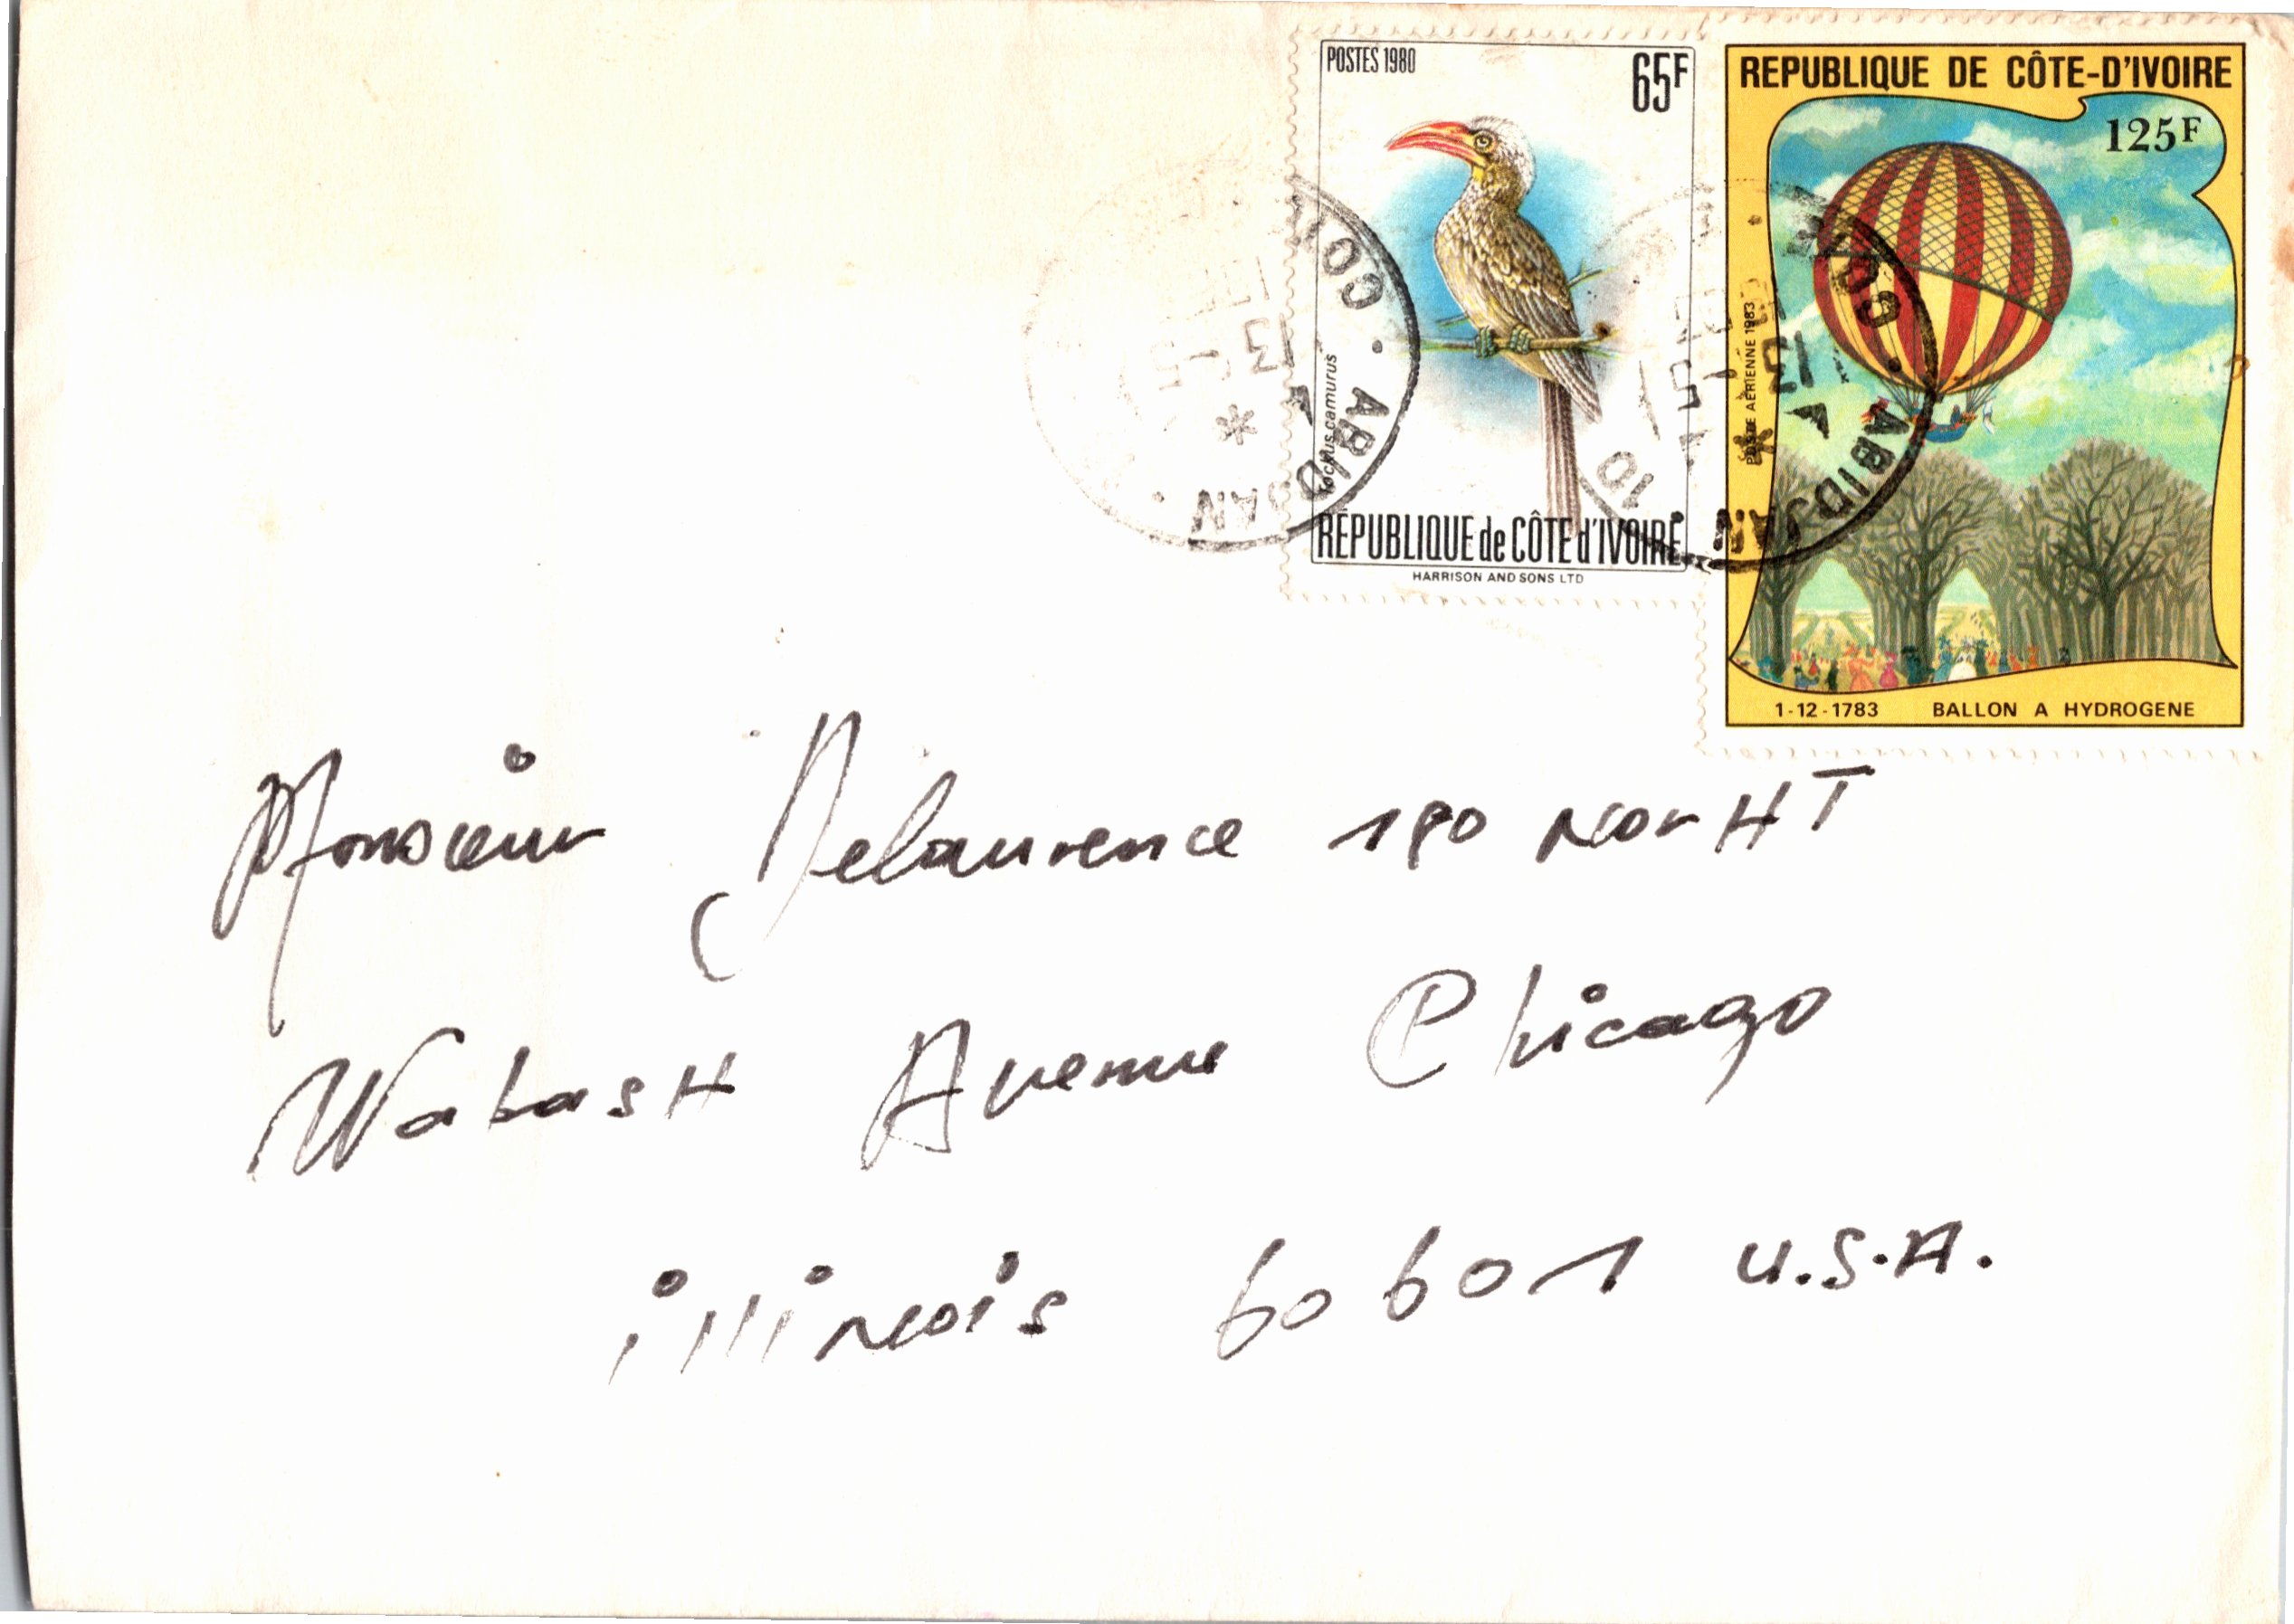 POSTES 1980
65F
Tockus camurus
RÉPUBLIQUE de CÔTE d'IVOIRE
HARRISON AND SONS LTD
REPUBLIQUE DE CÔTE-D'IVOIRE
125F
POSTE AERIENNE 1983
1-12-1783 BALLON A HYDROGENE
ABIDJAN
ABIDJAN
Monsieur Delaurence 190 NorHT
WabasH Avenue Chicago
illiNois 60601 U.S.A.